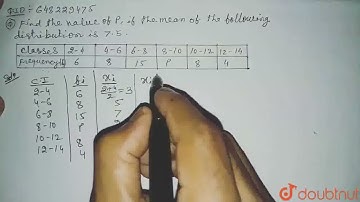 QID:- 648229475
Find the value of P, if the mean of the following
distribution is 7.5.
Classes 2-4 4-6 6-8 8-10 10-12 12-14
Frequency 6 8 15 P 8 4
Soln
C.I fi xi xi
2-4 6 2+4/2 = 3
4-6 8 5
6-8 15 7
8-10 P
10-12 8
12-14 4
doubtnut